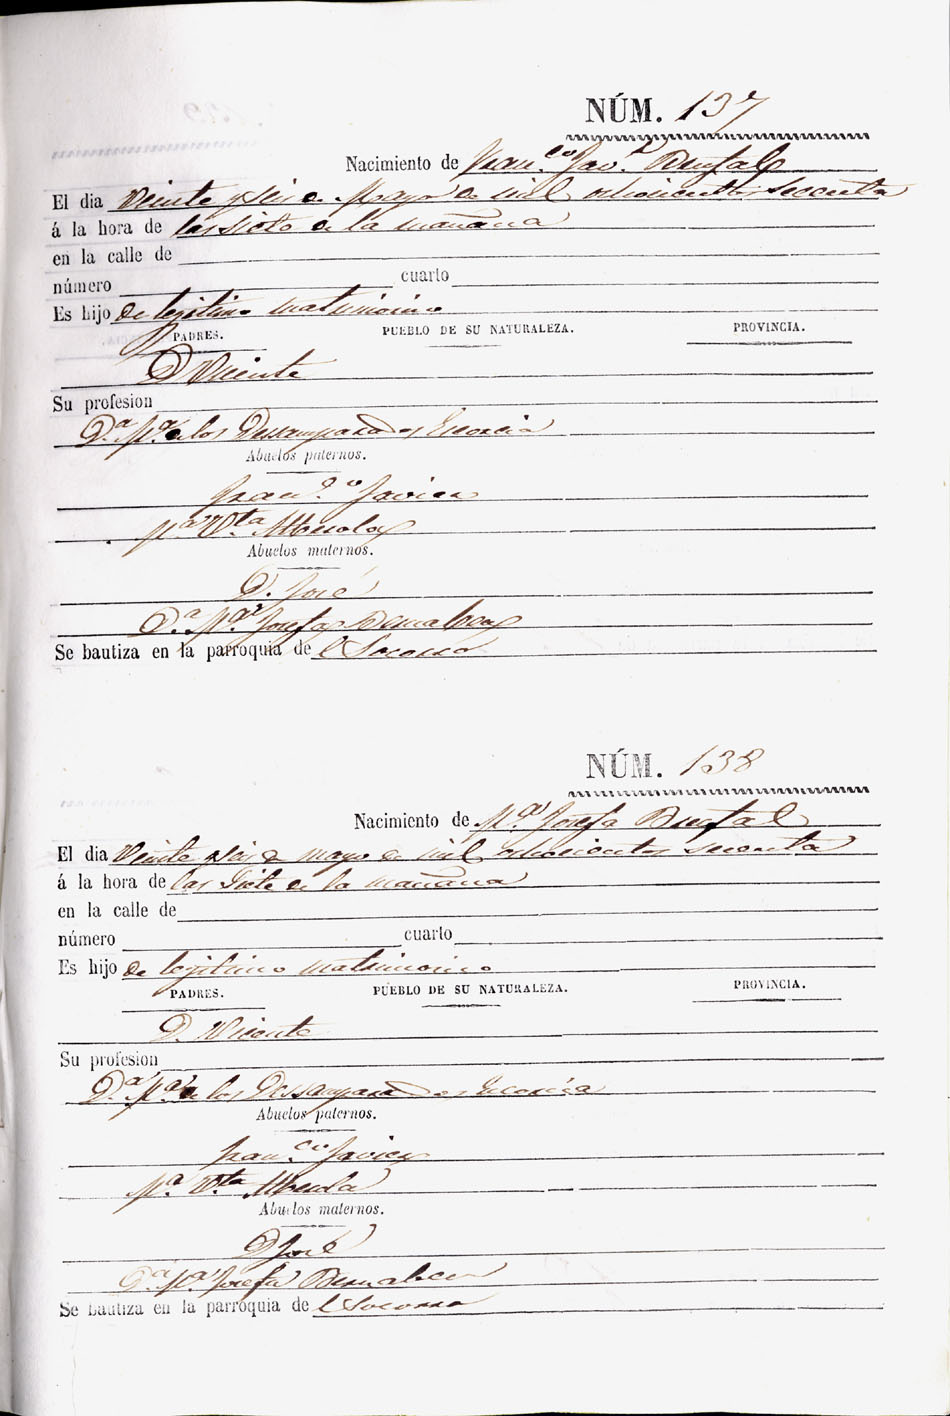 NÚM. 137
Nacimiento de Fran.co Jav.r Brufal
El dia Veinte y seis de Mayo de mil ochocientos secenta
á la hora de las siete de la mañana
en la calle de
número cuarto
Es hijo de legitimo matrimonio
PADRES. PUEBLO DE SU NATURALEZA. PROVINCIA.
D Vicente
Su profesion
D.a M.a de los Desamparados
Abuelos paternos.
Fran.co Javier
M.a V.ta
Abuelos maternos.
D. José
D.a M.a Josefa Bernabeu
Se bautiza en la parroquia de l Socorro
NÚM. 138
Nacimiento de M.a Josefa Brufal
El dia Veinte y seis de mayo de mil ochocientos secenta
á la hora de las Siete de la mañana
en la calle de
número cuarto
Es hijo de legitimo matrimonio
PADRES. PUEBLO DE SU NATURALEZA. PROVINCIA.
D. Vicente
Su profesion
D.a M.a de los Desamparados
Abuelos paternos.
Fran.co Javier
M.a V.ta
Abuelos maternos.
D José
D.a M.a Josefa Bernabeu
Se bautiza en la parroquia de l Socorro